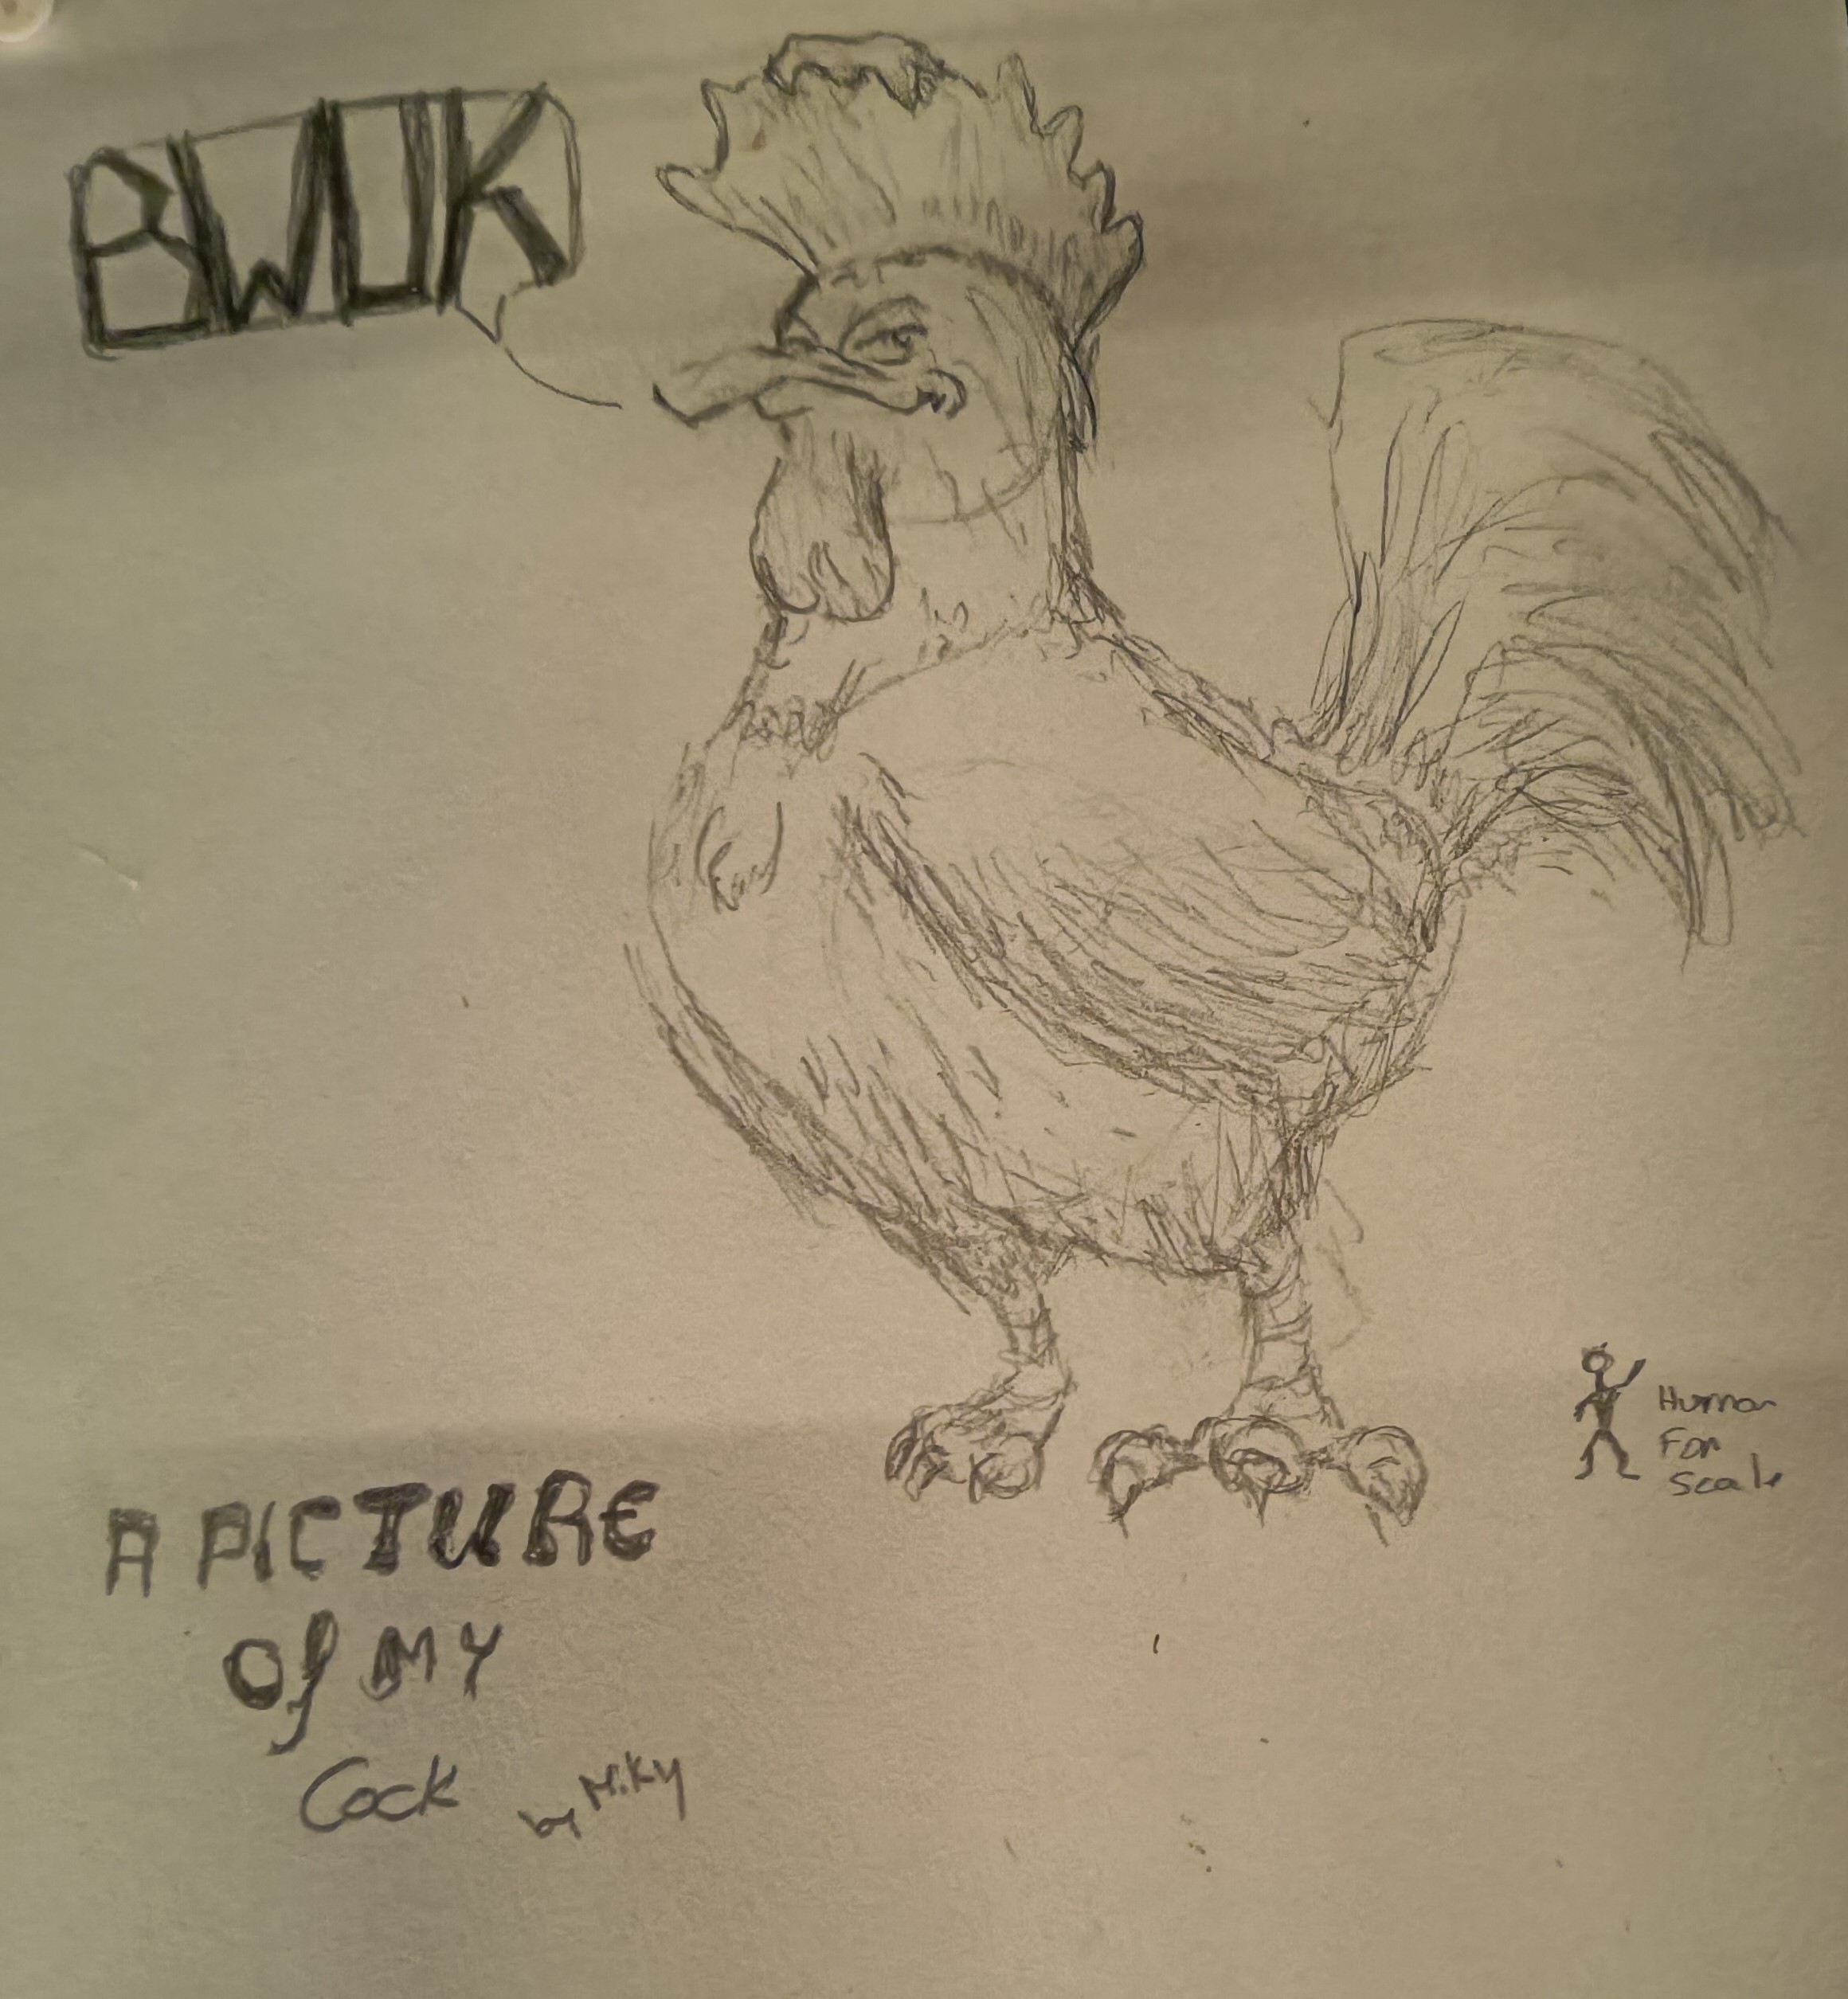 BWUK
Human
For
Scale
A PICTURE
Of MY
Cock
by Miky